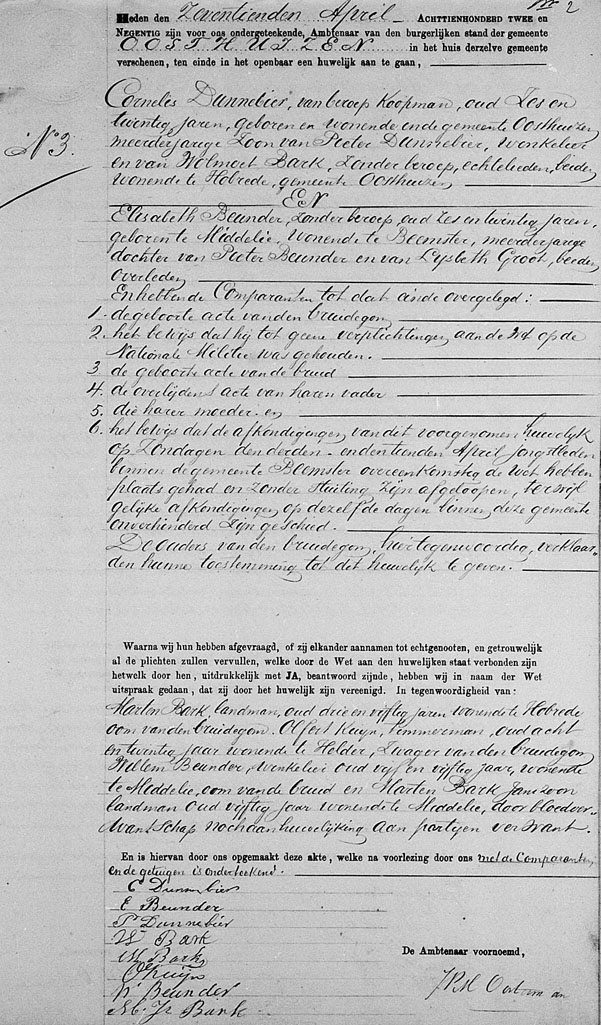 No 2
Heden den Zeventienden April ACHTTIENHONDERD TWEE en
NEGENTIG zijn voor ons ondergeteekende, Ambtenaar van den burgerlijken stand der gemeente
OOSTHUIZEN in het huis derzelve gemeente
verschenen, ten einde in het openbaar een huwelijk aan te gaan,
No 3.
Cornelis Dunnebier, van beroep Koopman, oud Zes en
twintig jaren, geboren en wonende in de gemeente Oosthuizen
meerderjarige Zoon van Pieter Dunnebier, Winkelier
en van Wolmoet Bark, Zonder beroep, echtelieden, beiden
wonende te Hobrede, gemeente Oosthuizen
EN
Elisabeth Beunder, Zonder beroep, oud Zes en twintig jaren,
geboren te Middelie, Wonende te Beemster, meerderjarige
dochter van Pieter Beunder en van Lijsbeth Groot, beiden
overleden
En hebbende Comparanten tot dat einde overgelegd:
1. de geboorte acte van den bruidegom
2. het bewijs dat hij tot geene verplichtingen aan de Wet op de
Nationale Militie was gehouden.
3 de geboorte acte van de bruid
4. de overlijdens acte van haren vader
5. die harer moeder. en
6. het bewijs dat de afkondigingen van dit voorgenomen huwelijk
op Zondagen den derden en den tienden April jongstleden
binnen de gemeente Beemster overeenkomstig de wet hebben
plaats gehad en zonder Stuiting zijn afgeloopen, terwijl
gelijke afkondigingen op dezelfde dagen binnen deze gemeente
onverhinderd zijn geschied.
De ouders van den bruidegom, hier tegenwoordig, verklaar„
den hunne toestemming tot dit huwelijk te geven.
Waarna wij hun hebben afgevraagd, of zij elkander aannamen tot echtgenooten, en getrouwelijk
al de plichten zullen vervullen, welke door de Wet aan den huwelijken staat verbonden zijn
hetwelk door hen, uitdrukkelijk met JA, beantwoord zijnde, hebben wij in naam der Wet
uitspraak gedaan, dat zij door het huwelijk zijn vereenigd. In tegenwoordigheid van:
Marten Bark, landman, oud drie en vijftig jaren wonende te Hobrede
oom van den bruidegom. Olfert Kuijn, Timmerman, oud acht
en twintig jaar wonende te Helder, Zwager van den bruidegom
Willem Beunder, Winkelier oud vijf en vijftig jaar, wonende
te Middelie, oom van de bruid en Marten Bark Janszoon
landman oud vijftig jaar wonende te Middelie, door bloedver„
wantschap noch aanhuwelijking aan partijen verwant.
En is hiervan door ons opgemaakt deze akte, welke na voorlezing door ons met de Comparanten
en de getuigen is onderteekend.
C Dunnebier
E Beunder
P Dunnebier
W Bark
M Bark
O Kuijn
W Beunder
M. Jz Bark
De Ambtenaar voornoemd,